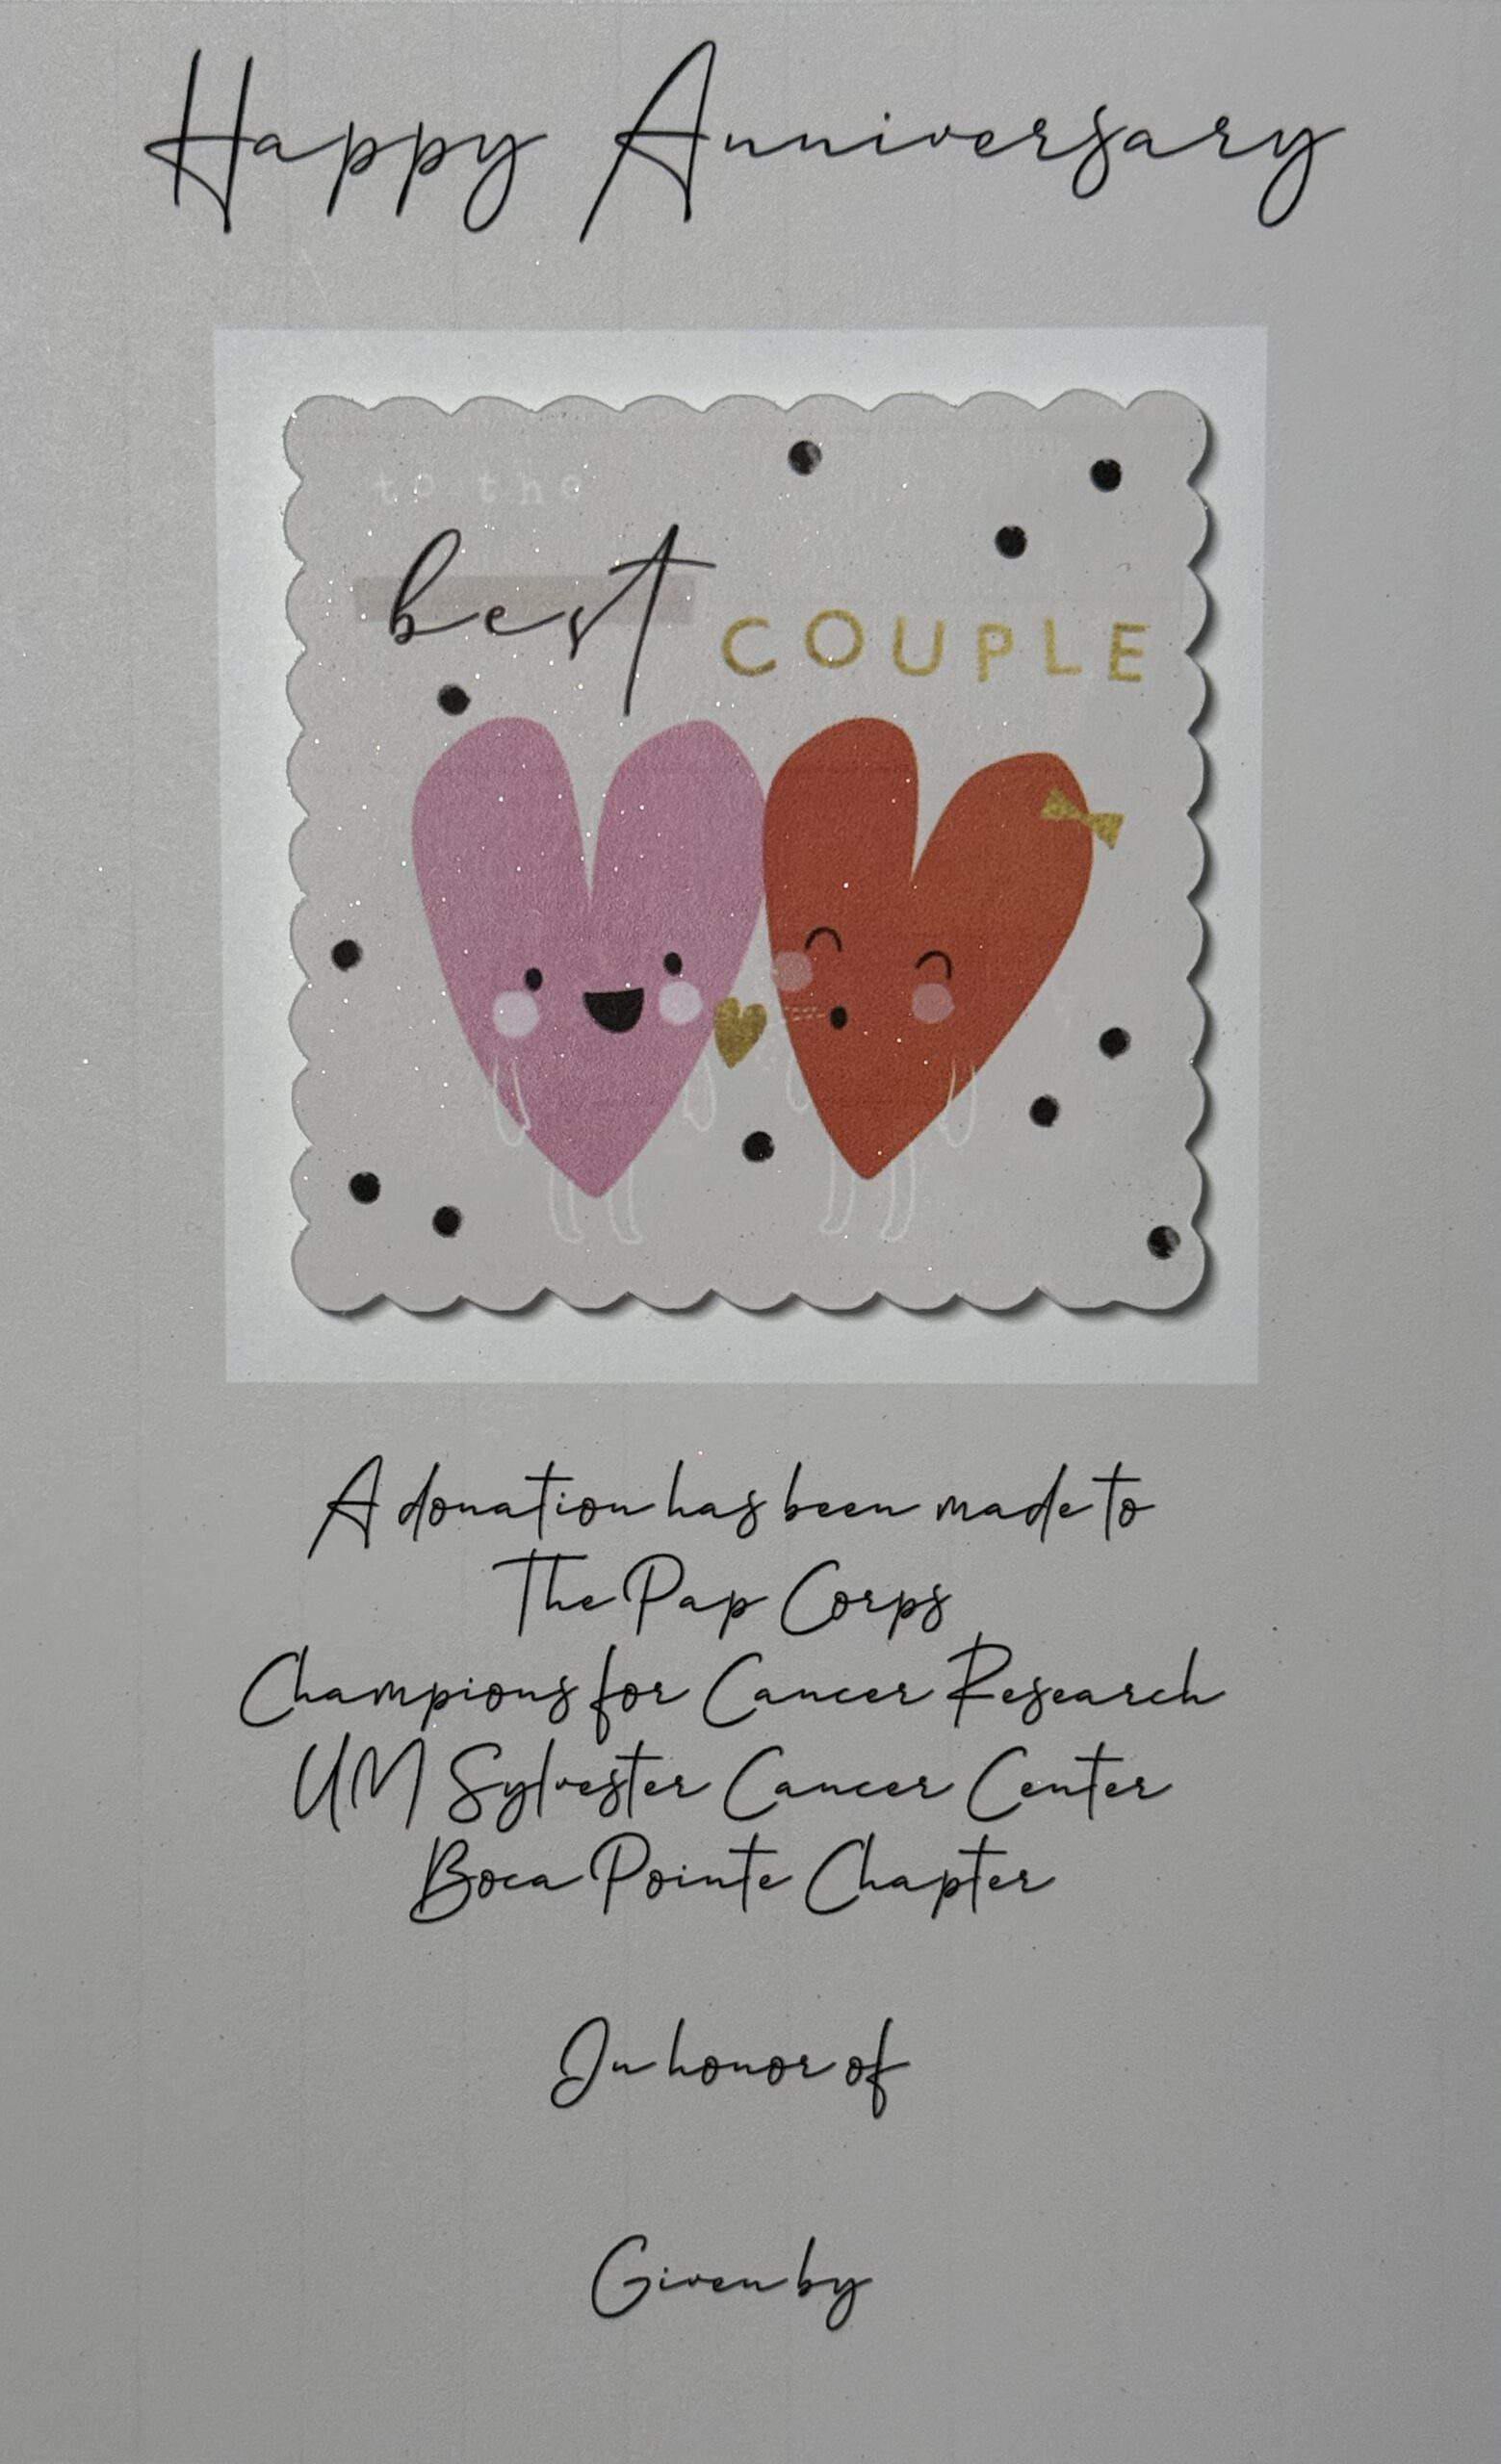 Happy Anniversary
to the
best COUPLE
A donation has been made to
The Pap Corps
Champions for Cancer Research
UM Sylvester Cancer Center
Boca Pointe Chapter
In honor of
Given by